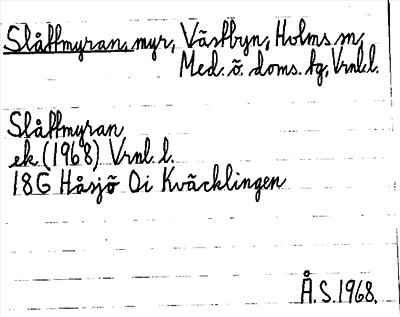 Slåttmyran, myr, Västbyn, Holms sn,
Med. ö. doms. tg, Vrnl. l.
Slåttmyran
ek. (1968) Vrnl. l.
18G Håsjö 0i Kväcklingen
Å.S. 1968.